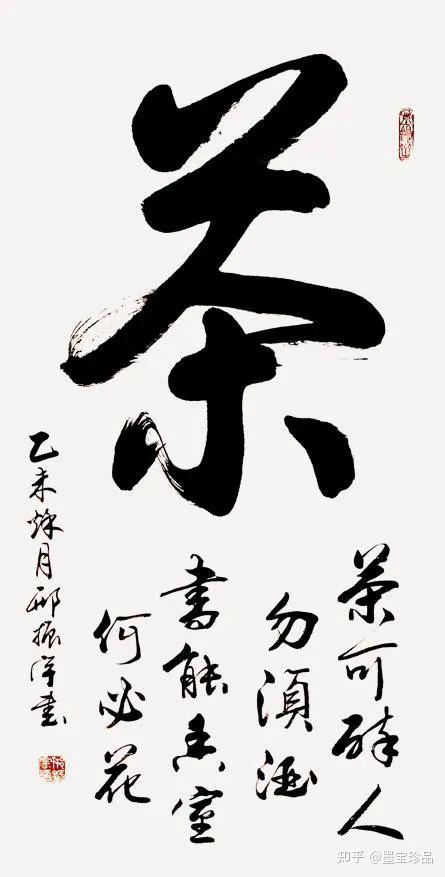 茶
茶可醉人
勿須酒
書能香室
何必花
乙未秋月邢振書
知乎 @墨宝珍品